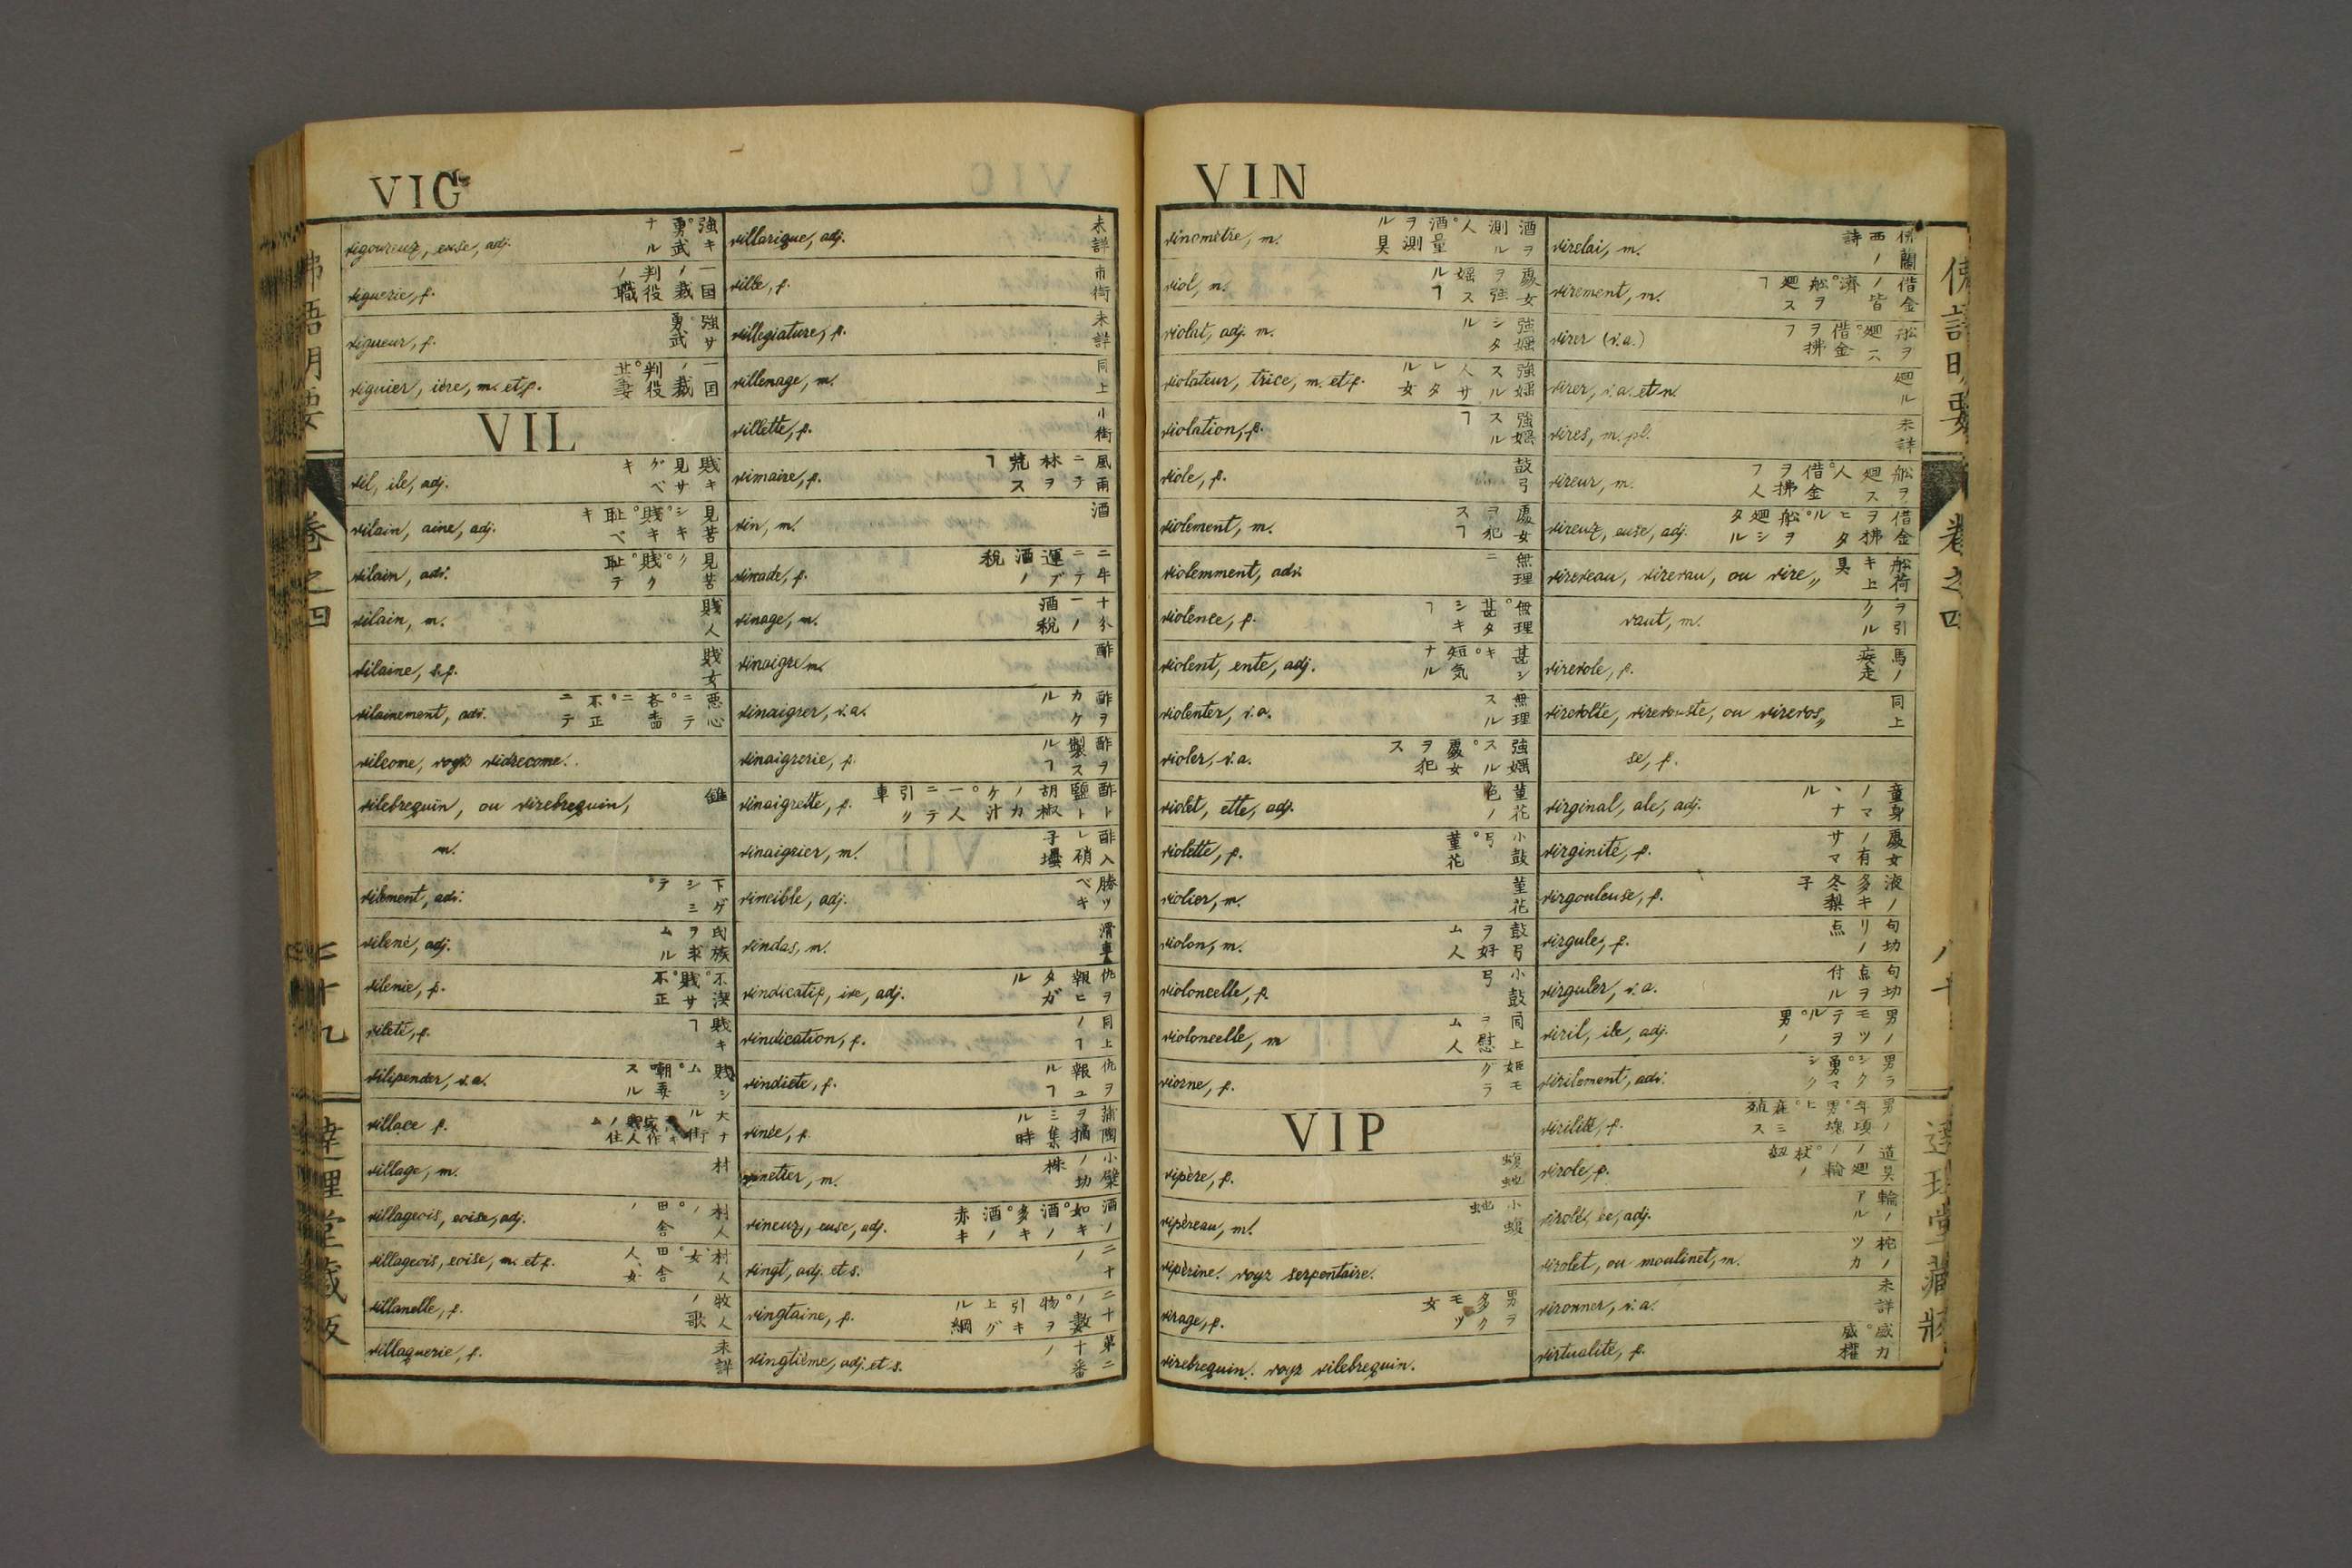 VIG
vigoureux, euse, adj. 強キ。勇武ナル
viguerie, f. 一国ノ裁判役ノ職
vigueur, f. 強サ。勇武
viguier, ière, m. et f. 一国ノ裁判役。
VIL
vil, ile, adj. 賎キ見サグベキ
vilain, aine, adj. 見苦シキ。賎キ。恥ベキ
vilain, adv. 見苦ク。賎ク。恥テ
vilain, m. 賎人
vilaine, s.f. 賎女
vilainement, adv. 悪心ニテ。吝嗇ニ。不正ニテ
vilcome, voyz vidrecome.
vilebrequin, ou virebrequin, 錐
m.
vilement, adv. 下ゲシミテ。
vilené, adj. 氏族ヲ求ムル
vilenie, f. 不潔。賎サ。不正
vileté, f. 賎キヿ
vilipender, v.a. 賎シム。嘲弄スル
villace f.
village, m. 村
villageois, eoise, adj. 村人ノ。田舎ノ
villageois, eoise, m. et f. 村人女。田舎人、女
villanelle, f. 牧人ノ歌
villaquerie, f. 未詳
villarique, adj. 未詳
ville, f. 市街
villegiature, f. 未詳
villenage, m. 同上
villette, f. 小街
vimaire, f. 風雨ニテ林ヲ荒スヿ
vin, m. 酒
vinade, f. 二牛ニテ運ブ酒ノ税
vinage, m. 十分一ノ酒税
vinaigre m. 酢
vinaigrer, v.a. 酢ヲカケル
vinaigrerie, f. 酢ヲ製スルヿ
vinaigrette, f. 酢ト塩ト胡椒ノカケ汁。一人ニテ引リ車
vinaigrier, m. 酢入レ硝子壜
vincible, adj. 勝ツベキ
vindas, m. 滑車
vindicatif, ive, adj. 仇ヲ報ヒタガル
vindication, f. 同上ノヿ
vindicte, f. 仇ヲ報ユルヿ
vinée, f. 葡萄ヲ摘ミ集ル時
vinetier, m. 小檗ノ幼株
vineux, euse, adj. 酒ノ如キ。酒ノ多キ。酒ノ赤キ
vingt, adj. et s. 二十ノ
vingtaine, f. 二十ノ数。物ヲ引キ上グル綱
vingtième, adj. et s. 第二十番ノ
VIN
vinomètre, m. 酒ヲ測ル人。酒量ヲ測ル具
viol, m. 處女ヲ強婬スルヿ
violat, adj. m. 強婬シタル
violateur, trice, m. et f. 強婬スル人サレタル女
violation, f. 強婬スルヿ
viole, f. 鼓弓
violement, m. 處女ヲ犯スヿ
violemment, adv. 無理ニ
violence, f. 無理。甚タシキヿ
violent, ente, adj. 甚シキ。短気ナル
violenter, v.a. 無理スル
violer, v.a. 強婬スル。處女ヲ犯ス
violet, ette, adj. 菫花色ノ
violette, f. 小鼓弓。菫花
violier, m. 菫花
violon, m. 鼓弓ヲ好ム人
violoncelle, f. 小鼓弓
violoncelle, m 同上ヲ慰ム人
viorne, f. 姫モグラ
VIP
vipère, f. 蝮蛇
vipèreau, m. 小蝮蛇
vipèrine. voyz serpentaire.
virage, f.
virebrequin. voyz vilebrequin.
virelai, m. 佛蘭西ノ詩
virement, m. 借金ノ皆済。舩ヲ廻スヿ
virer (v.a.) 舩ヲ廻ス。借金ヲ拂フ
virer, v.a. et n. 廻ル
vires, m. pl. 未詳
vireur, m. 舩ヲ廻ス人。借金ヲ拂フ人
vireux, euse, adj. 借金ヲ拂ヒタル。舩ヲ廻シタル
virereau, virevau, ou vire〃 舩荷キ上具
vaut, m. ヲ引クル
virevole, f. 馬ノ疾走
virevolte, virevouste, ou virevos〃 同上
se, f.
virginal, ale, adj. 童身ノマヽナル
virginité, f. 處女ノ有サマ
virgouleuse, f. 液ノ多キ冬梨子
virgule, f. 句切リノ点
virguler, v.a. 句切点ヲ付ル
viril, ile, adj. 男ノモツヲテル。男ノ
virilement, adv. 男ラシク。勇マシク
virilité, f.
virole, f.
virolé, ée, adj. 輪ノアル
virolet, ou moulinet, m. 柁ノツカ
vironner, v.a. 未詳
virtualité, f. 威力。威權
佛語明要 卷之四 七十九 達理堂藏版
佛語明要 卷之四 八十 達理堂藏版